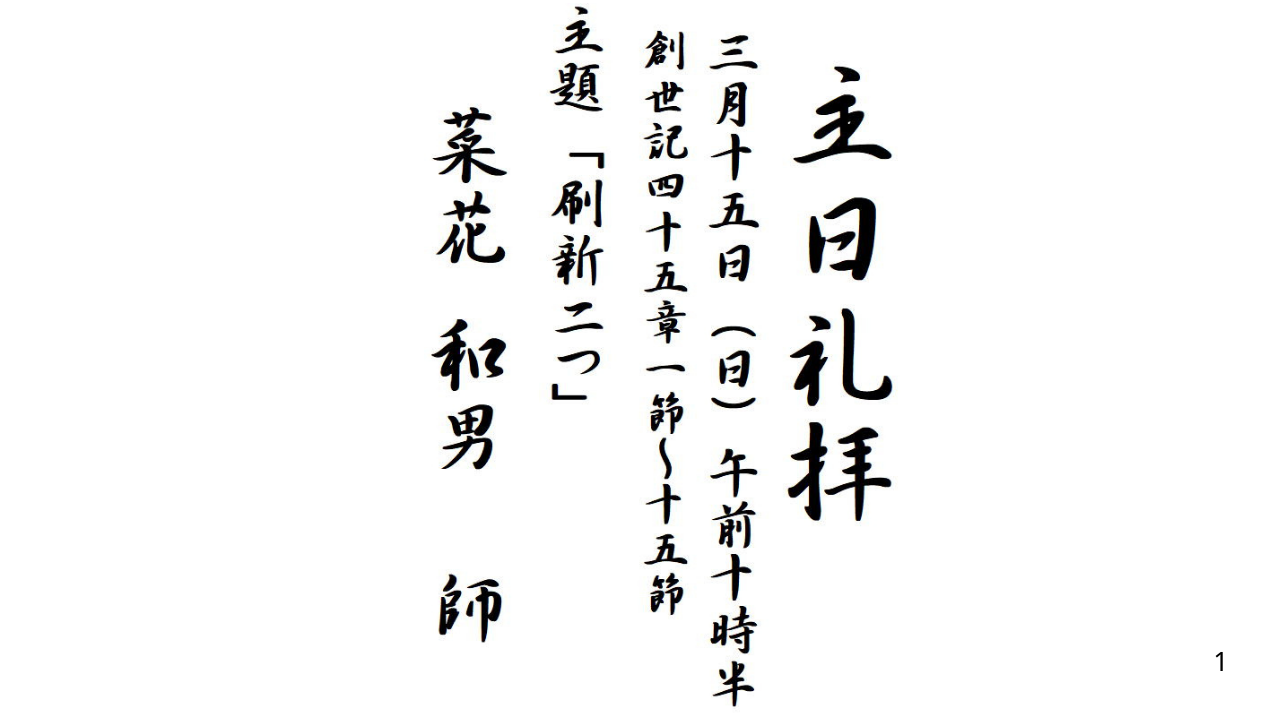 主日礼拝
三月十五日（日）午前十時半
創世記四十五章一節～十五節
主題「刷新二つ」
菜花 和男 師
1